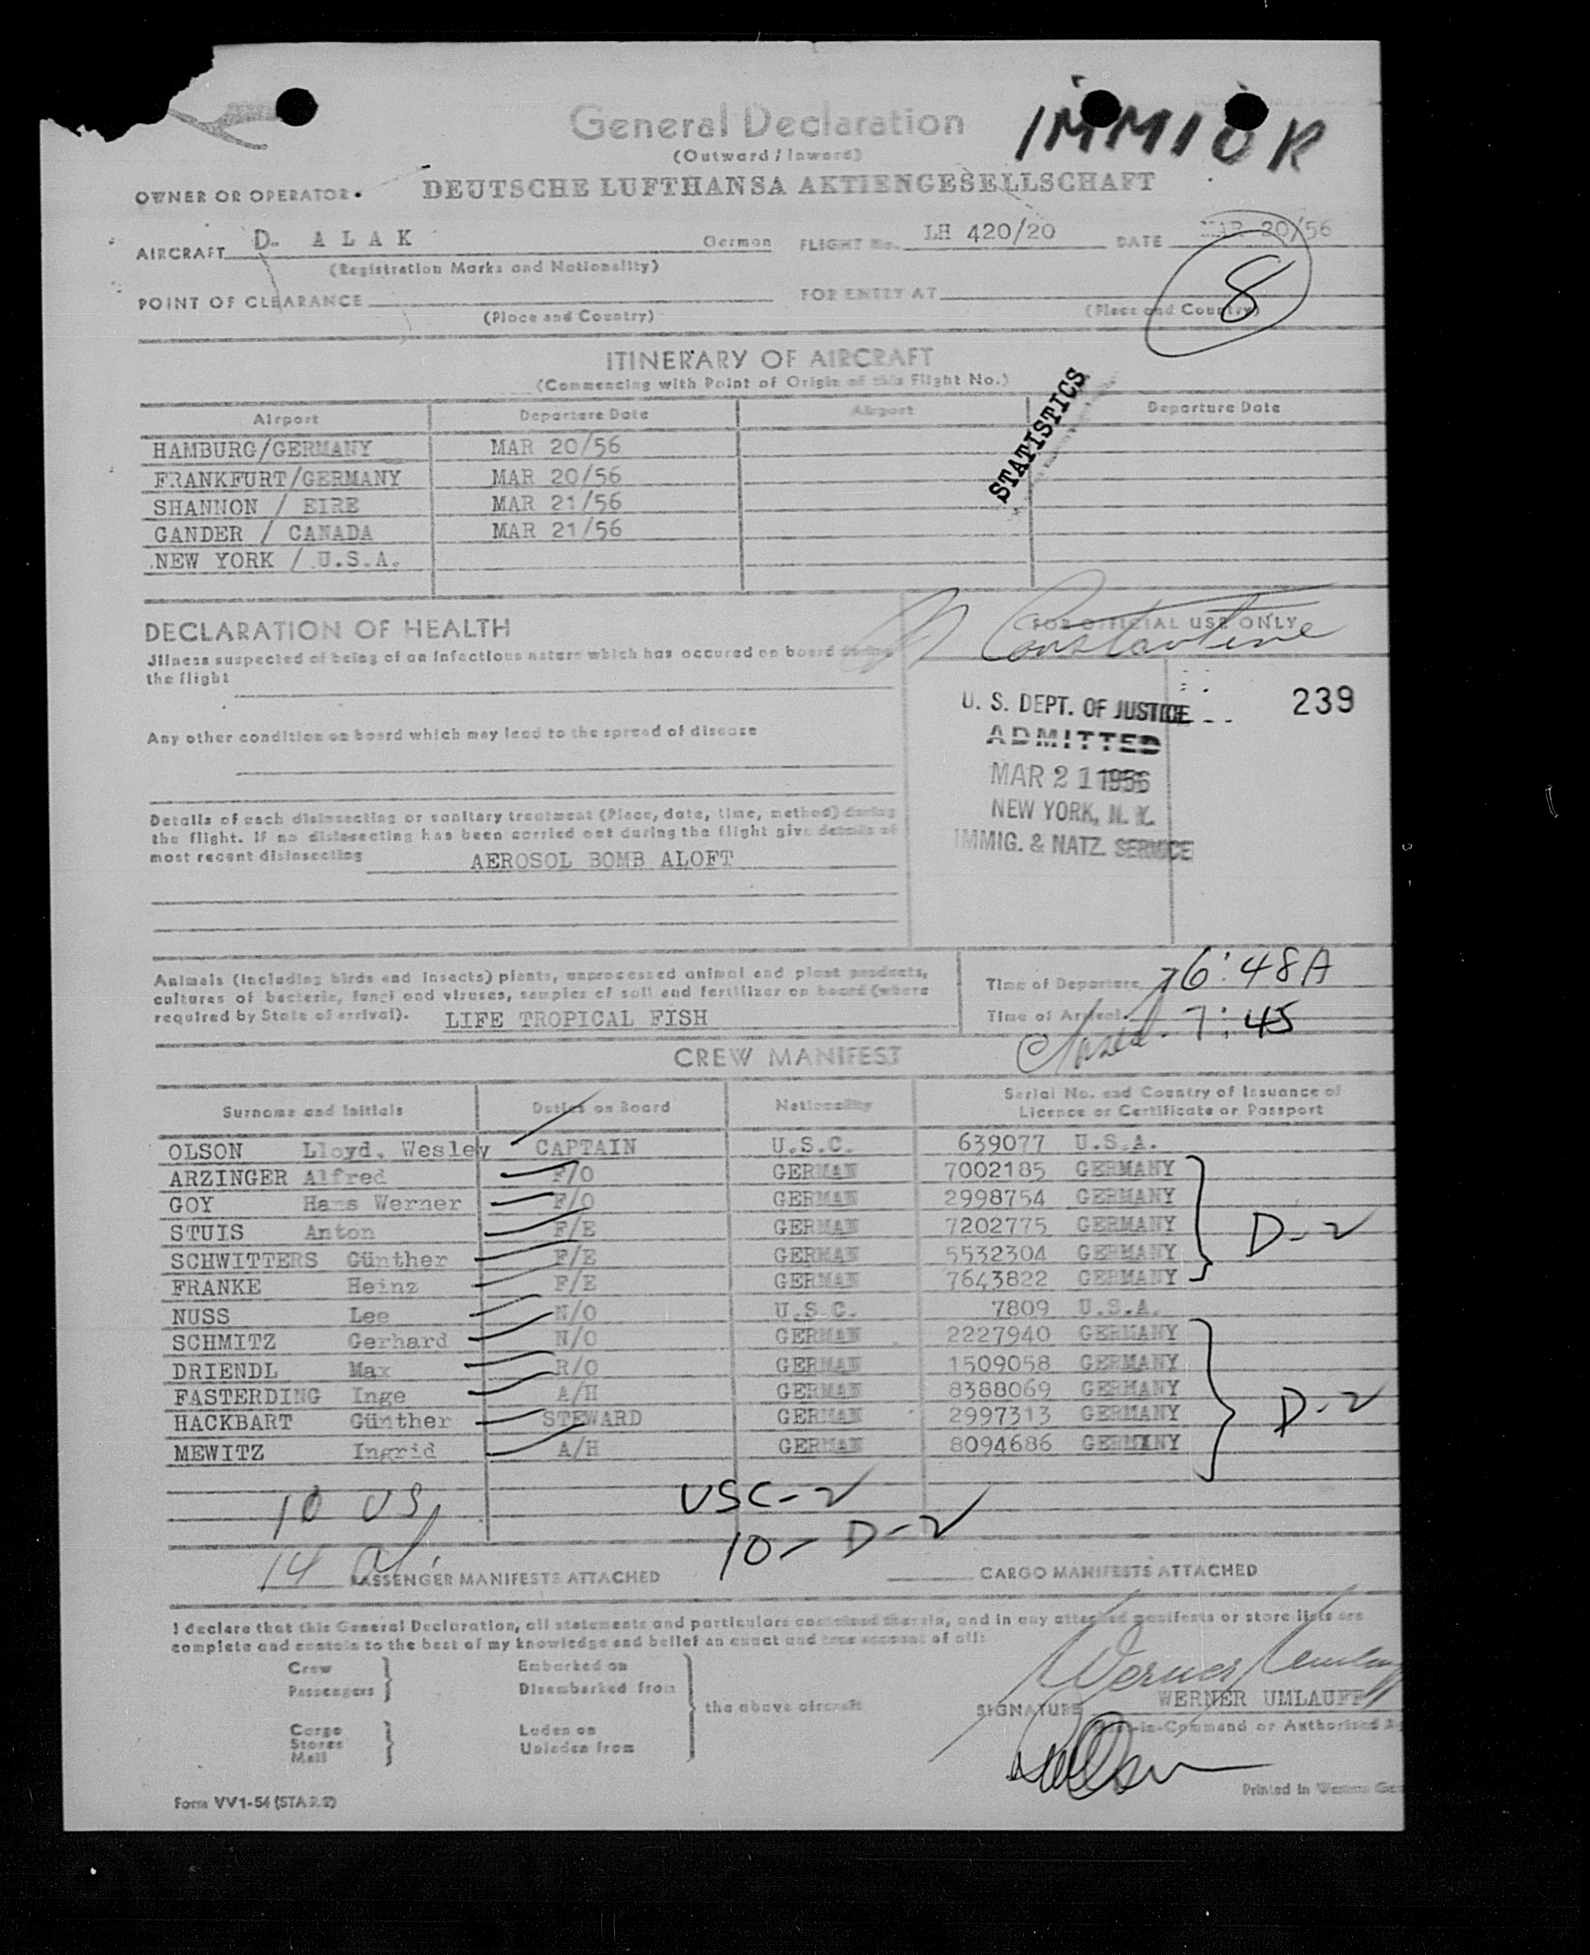 General Declaration
(Outward / Inward)
IMMIGR
OWNER OR OPERATOR. DEUTSCHE LUFTHANSA AKTIENGESELLSCHAFT
AIRCRAFT D. A L A K German FLIGHT No. LH 420/20 DATE MAR 20/56
(Registration Marks and Nationality)
8
POINT OF CLEARANCE FOR ENTRY AT
(Place and Country) (Place and Country)
ITINERARY OF AIRCRAFT
(Commencing with Point of Origin of this Flight No.)
STATISTICS
Airport Departure Date Airport Departure Date
HAMBURG/GERMANY MAR 20/56
FRANKFURT/GERMANY MAR 20/56
SHANNON / EIRE MAR 21/56
GANDER / CANADA MAR 21/56
NEW YORK / U.S.A.
DECLARATION OF HEALTH
Jllness suspected of being of an infectious nature which has occured on board during
the flight
Any other condition on board which may lead to the spread of disease
Details of each disinsecting or sanitary treatment (Place, date, time, method) during
the flight. If no disinsecting has been carried out during the flight give details of
most recent disinsecting AEROSOL BOMB ALOFT
FOR OFFICIAL USE ONLY
Constantine
U. S. DEPT. OF JUSTICE
239
ADMITTED
MAR 21 1956
NEW YORK, N. Y.
IMMIG. & NATZ. SERVICE
Animals (including birds and insects) plants, unprocessed animal and plant products,
cultures of bacteria, fungi and viruses, samples of soil and fertilizer on board (where
required by State of arrival). LIFE TROPICAL FISH
Time of Departure 6:48A
Time of Arrival 7:45
CREW MANIFEST
Surname and Initials Duties on Board Nationality Serial No. and Country of Issuance of
Licence or Certificate or Passport
OLSON Lloyd. Wesley CAPTAIN U.S.C. 639077 U.S.A.
ARZINGER Alfred F/O GERMAN 7002185 GERMANY
GOY Hans Werner F/O GERMAN 2998754 GERMANY
STUIS Anton F/E GERMAN 7202775 GERMANY
SCHWITTERS Günther F/E GERMAN 5532304 GERMANY
FRANKE Heinz F/E GERMAN 7643822 GERMANY
D-2
NUSS Lee N/O U.S.C. 7809 U.S.A.
SCHMITZ Gerhard N/O GERMAN 2227940 GERMANY
DRIENDL Max R/O GERMAN 1509058 GERMANY
FASTERDING Inge A/H GERMAN 8388069 GERMANY
HACKBART Günther STEWARD GERMAN 2997313 GERMANY
MEWITZ Ingrid A/H GERMAN 8094686 GERMANY
D-2
10 US USC-2
14 al. 10- D-2
PASSENGER MANIFESTS ATTACHED CARGO MANIFESTS ATTACHED
I declare that this General Declaration, all statements and particulars contained therein, and in any attached manifests or store lists are
complete and contain to the best of my knowledge and belief an exact and true account of all:
Crew Embarked on
Passengers Disembarked from
the above aircraft
Cargo Laden on
Stores Unladen from
Mail
SIGNATURE WERNER UMLAUFF
-in-Command or Authorised
Form VV1-54 (STA 2.2)
Printed in Western